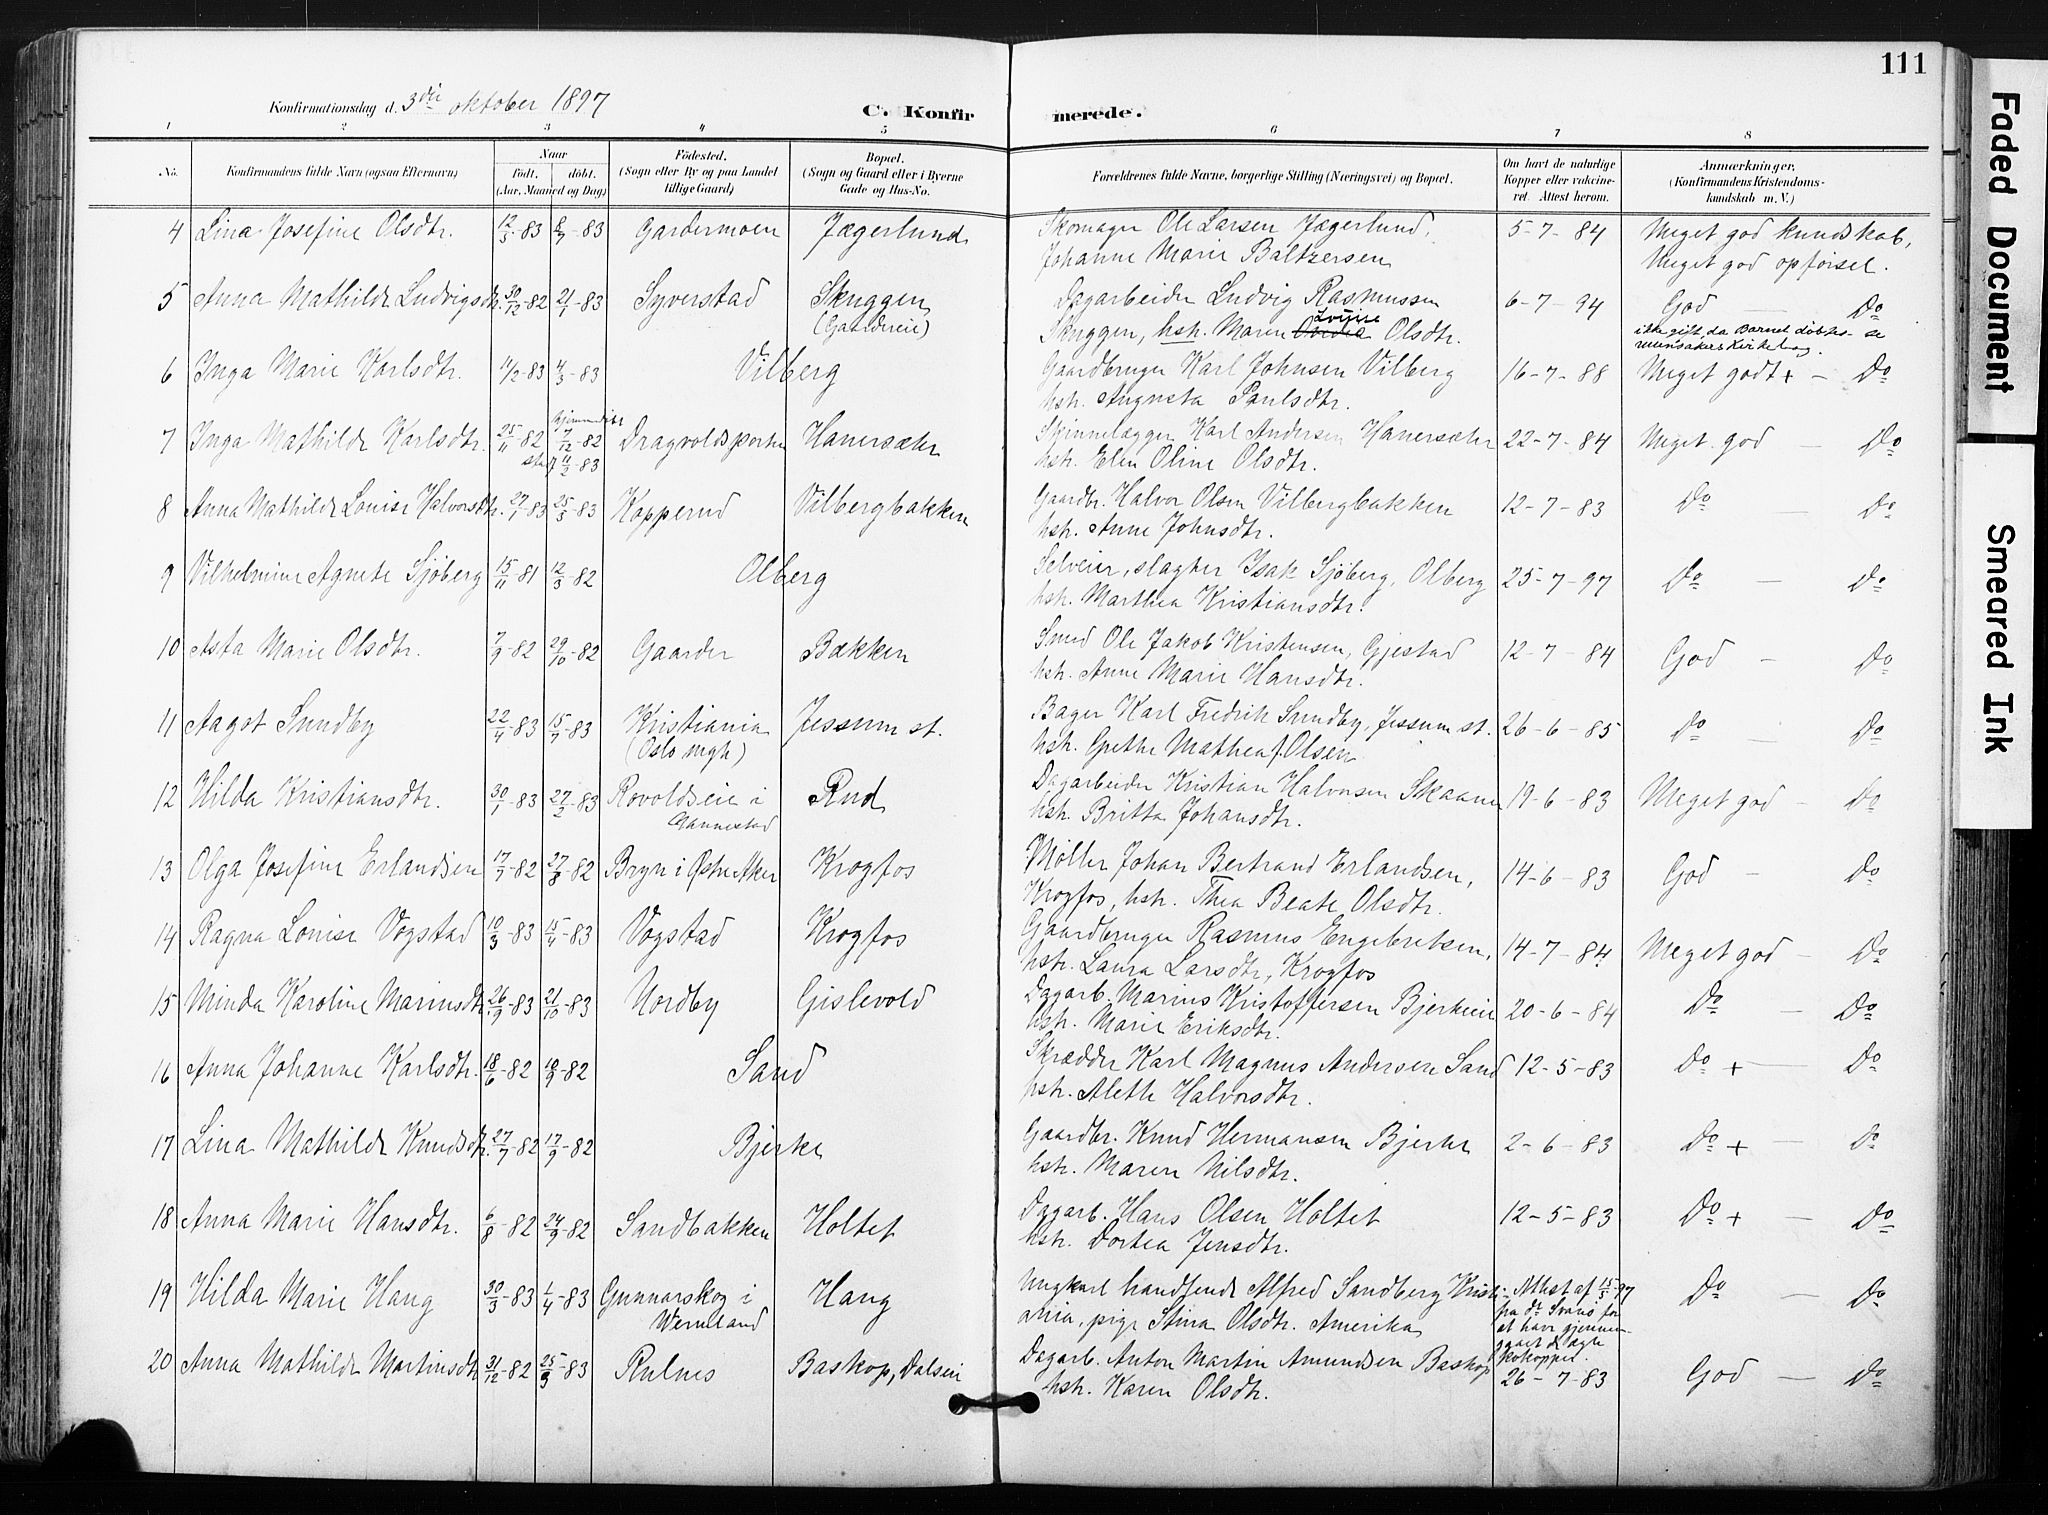 111
Faded Document
Smeared Ink
Konfirmationsdag d. 3die oktober 1897
C. Konfirmerede.
1 2 3 4 5 6 7 8
No. Konfirmandens fulde Navn (ogsaa Efternavn) Naar født. døbt. (Aar, Maaned og Dag) Fødested. (Sogn eller By og paa Landet tillige Gaard) Bopæl. (Sogn og Gaard eller i Byerne Gade og Hus-No. Forældrenes fulde Navne, borgerlige Stilling (Næringsvei) og Bopæl. Om havt de naturlige Kopper eller vakcineret. Attest herom. Anmærkninger, (Konfirmandens Kristendomskundskab m. V.)
4 Lina Josefine Olsdtr. 12/5-83 8/7-83 Gardermoen Jægerlund Skomager Ole Larsen Jægerlund, 5-7-84 Meget god kundskab,
Johanne Marie Baltzersen Meget god opførsel.
5 Anna Mathilde Ludvigsdtr. 30/12-82 21/1-83 Syverstad Skyggen (Gaardereie) Dagarbeider Ludvig Rasmussen 6-7-94 God Do
Skyggen, hstr. Maren Lovise Olsdtr. ikke gift da Barnet døbtes
6 Inga Marie Karlsdtr. 14/2-83 4/3-83 Vilberg Gaardbruger Karl Johnsen Vilberg 16-7-88 Meget godt + - Do
hstr. Augusta Paulsdtr.
7 Inga Mathilde Karlsdtr. 25/11-82 hjemmedøbt 7/12-82 st. 11/2-83 Dragvoldsporten Hanersæter Skindlægger Karl Andersen Hanersæter 22-7-84 Meget god - Do
hstr. Elen Oline Olsdtr.
8 Anna Mathilde Louise Halvorsdtr. 27/1-83 25/3-83 Kopperud Vilbergbakken Gaardbr. Halvor Olsen Vilbergbakken 12-7-83 Do - Do
hstr. Anne Johnsdtr.
9 Vilhelmine Agnete Sjöberg 15/11-81 12/3-82 Olberg Selveier, slagter Isak Sjöberg, Olberg 25-7-97 Do - Do
hstr. Marthea Kristiansdtr.
10 Asta Marie Olsdtr. 7/9-82 29/10-82 Gaarder Bakken Smed Ole Jakob Kristensen, Gjestad 12-7-84 God - Do
hstr. Anne Marie Hansdtr.
11 Aagot Sundby 22/4-83 15/7-83 Kristiania (Oslo mgh) Jessum st. Bager Karl Fredrik Sundby, Jessum st. 26-6-85 Do - Do
hstr. Grethe Mathea f. Olsen
12 Hilda Kristiansdtr. 30/1-83 27/2-83 Rovoldseie i Gannestad Rud Dagarbeider Kristian Halvorsen Skaaner 19-6-83 Meget god - Do
hstr. Britta Johansdtr.
13 Olga Josefine Erlandsen 17/7-82 27/8-82 Bryn i Østre Aker Krogfos Møller Johan Bertrand Erlandsen, 14-6-83 God - Do
Krogfos, hstr. Thea Beate Olsdtr.
14 Ragna Louise Vogstad 10/3-83 15/4-83 Vogstad Krogfos Gaardbruger Rasmus Engebretsen, 14-7-84 Meget god - Do
hstr. Laura Larsdtr, Krogfos
15 Minda Karoline Marinsdtr 26/9-83 21/10-83 Nordby Gislevold Dagarb. Marius Kristoffersen Bjerkeeie 20-6-84 Do - Do
hstr. Marie Eriksdtr.
16 Anna Johanne Karlsdtr. 18/6-82 10/9-82 Sand Skrædder Karl Magnus Andersen Sand 12-5-83 Do + - Do
hstr. Alette Halvorsdtr.
17 Lina Mathilde Knudsdtr. 27/7-82 17/9-82 Bjerke Gaardbr. Knud Hermansen Bjerke 2-6-83 Do + - Do
hstr. Maren Nilsdtr.
18 Anna Marie Hansdtr. 6/8-82 24/9-82 Sandbakken Holtet Dagarb. Hans Olsen Holtet 12-5-83 Do + - Do
hstr. Dortea Jensdtr.
19 Hilda Marie Haug 30/3-83 1/4-83 Gunnarskog i Wermland Haug Ungkarl handlende Alfred Sandberg Kristiania, pige Stina Olsdtr. Amerika Attest af 15/5-97 fra dr. Svanø for at have gjennemgaaet de ægte kokopper. Do - Do
20 Anna Mathilde Martinsdtr 31/12-82 25/3-83 Rulnes Baskop, Dalseie Dagarb. Anton Martin Amundsen Baskop 26-7-83 God - Do
hstr. Karen Olsdtr.